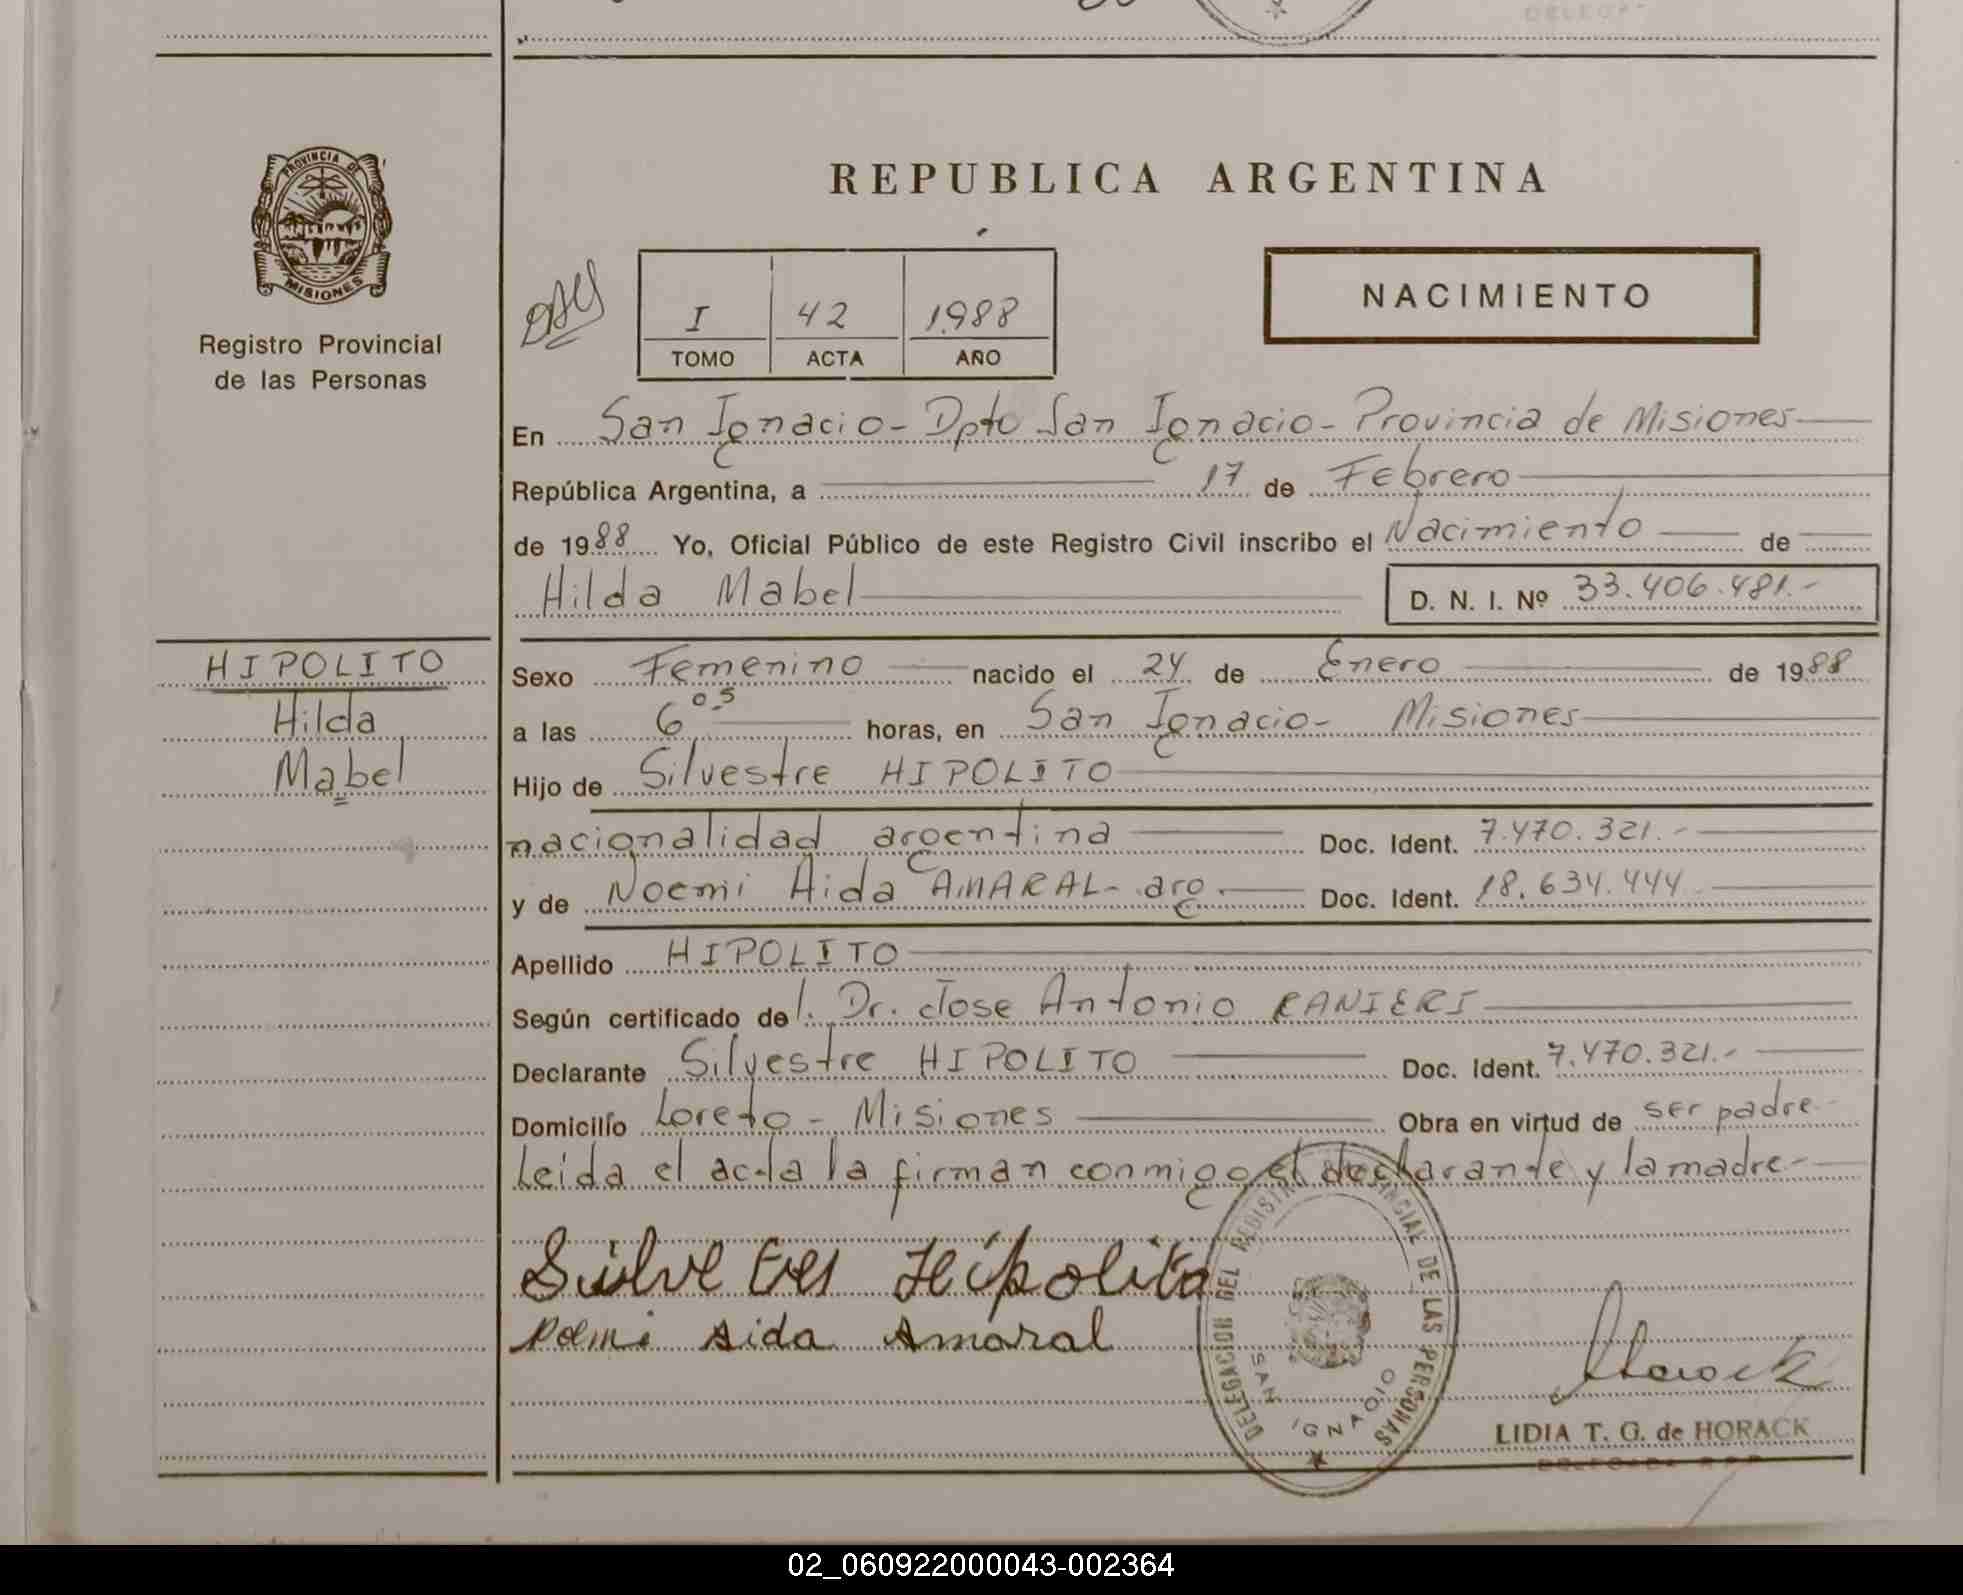 DELEGA
PROVINCIA DE
MISIONES
Registro Provincial
de las Personas
REPUBLICA ARGENTINA
I 42 1988
TOMO ACTA AÑO
NACIMIENTO
En San Ignacio - Dpto San Ignacio - Provincia de Misiones
República Argentina, a 17 de Febrero
de 1988 Yo, Oficial Público de este Registro Civil inscribo el Nacimiento de
Hilda Mabel D. N. I. Nº 33.406.481.-
HIPOLITO
Hilda
Mabel
Sexo Femenino nacido el 24 de Enero de 1988
a las 6 05 horas, en San Ignacio - Misiones
Hijo de Silvestre HIPOLITO
nacionalidad argentina Doc. Ident. 7.470.321.-
y de Noemi Aida AMARAL - arg. Doc. Ident. 18.634.444
Apellido HIPOLITO
Según certificado del. Dr. Jose Antonio RANIERI
Declarante Silvestre HIPOLITO Doc. Ident. 7.470.321.-
Domicilio Loreto - Misiones Obra en virtud de ser padre-
Leida el acta la firman conmigo el declarante y la madre-
Silvetres Hipolito
Noemi Aida Amaral
DELEGACION DEL REGISTRO PROVINCIAL DE LAS PERSONAS
SAN IGNACIO
Horack
LIDIA T. G. de HORACK
DELEGADA R.P.P.
02_060922000043-002364